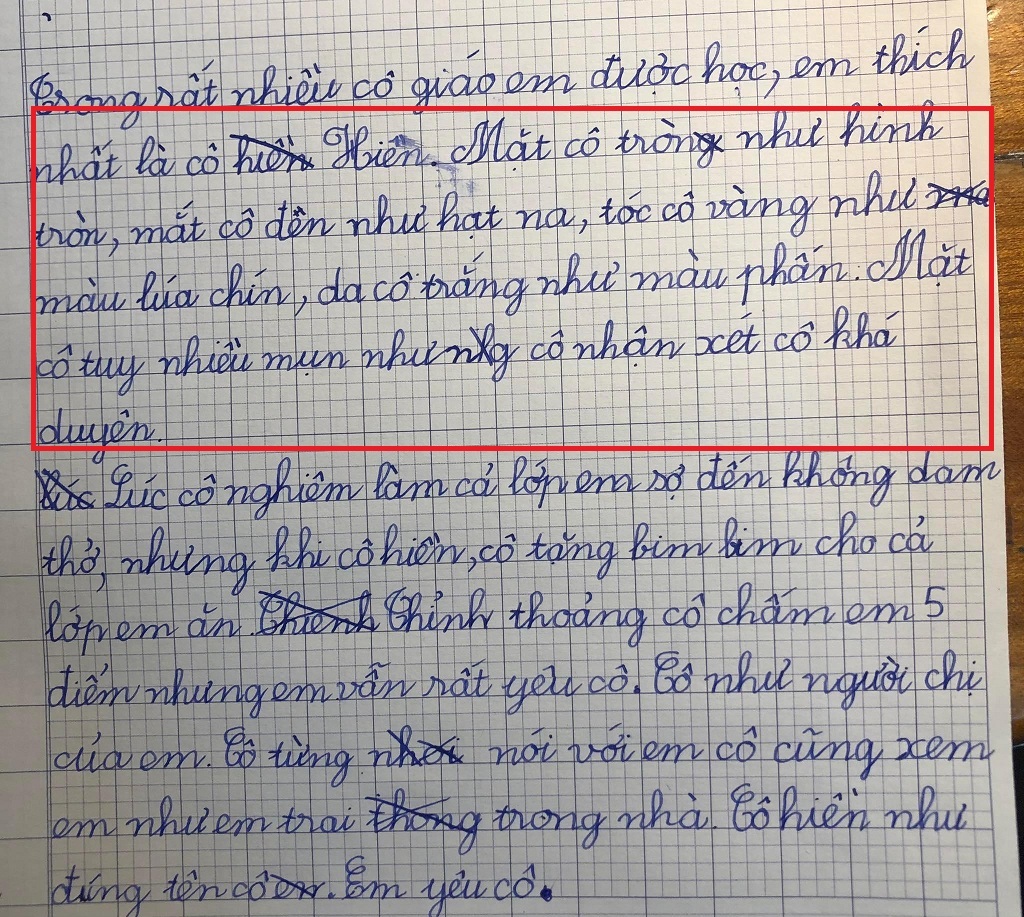 Trong rất nhiều cô giáo em được học, em thích
nhất là cô hiền Hiền. Mặt cô tròn như hình
tròn, mắt cô đên như hạt na, tóc cô vàng như
màu lúa chín, da cô trắng như màu phấn. Mặt
cô tuy nhiều mụn như nhg cô nhận xét cô khá
duyên.
Lúc Lúc cô nghiêm làm cả lớp em sợ đến không dam
thở, nhưng khi cô hiền, cô tặng bim bim cho cả
lớp em ăn. Thỉnh thoảng cô chấm em 5
điểm nhưng em vẫn rất yêu cô. Cô như người chị
của em. Cô từng nói với em cô cũng xem
em như em trai thong trong nhà. Cô hiền như
đúng tên cô. Em yêu cô.